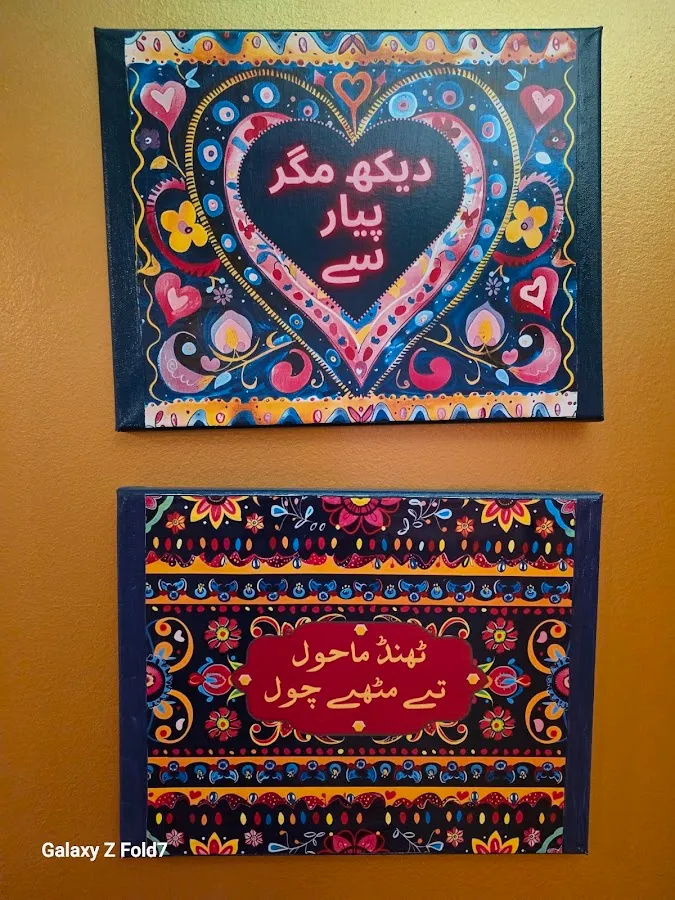 دیکھ مگر
پیار
سے
ٹھنڈ ماحول
تے مٹھے چول
Galaxy Z Fold7